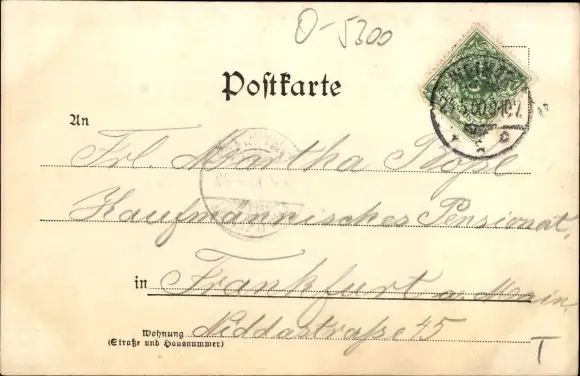 O-5300
Postkarte
An
Frl. Martha
Kaufmännisches Pensionat,
in Frankfurt a. Main
Wohnung
(Straße und Hausnummer)
Niddastraße 45
T